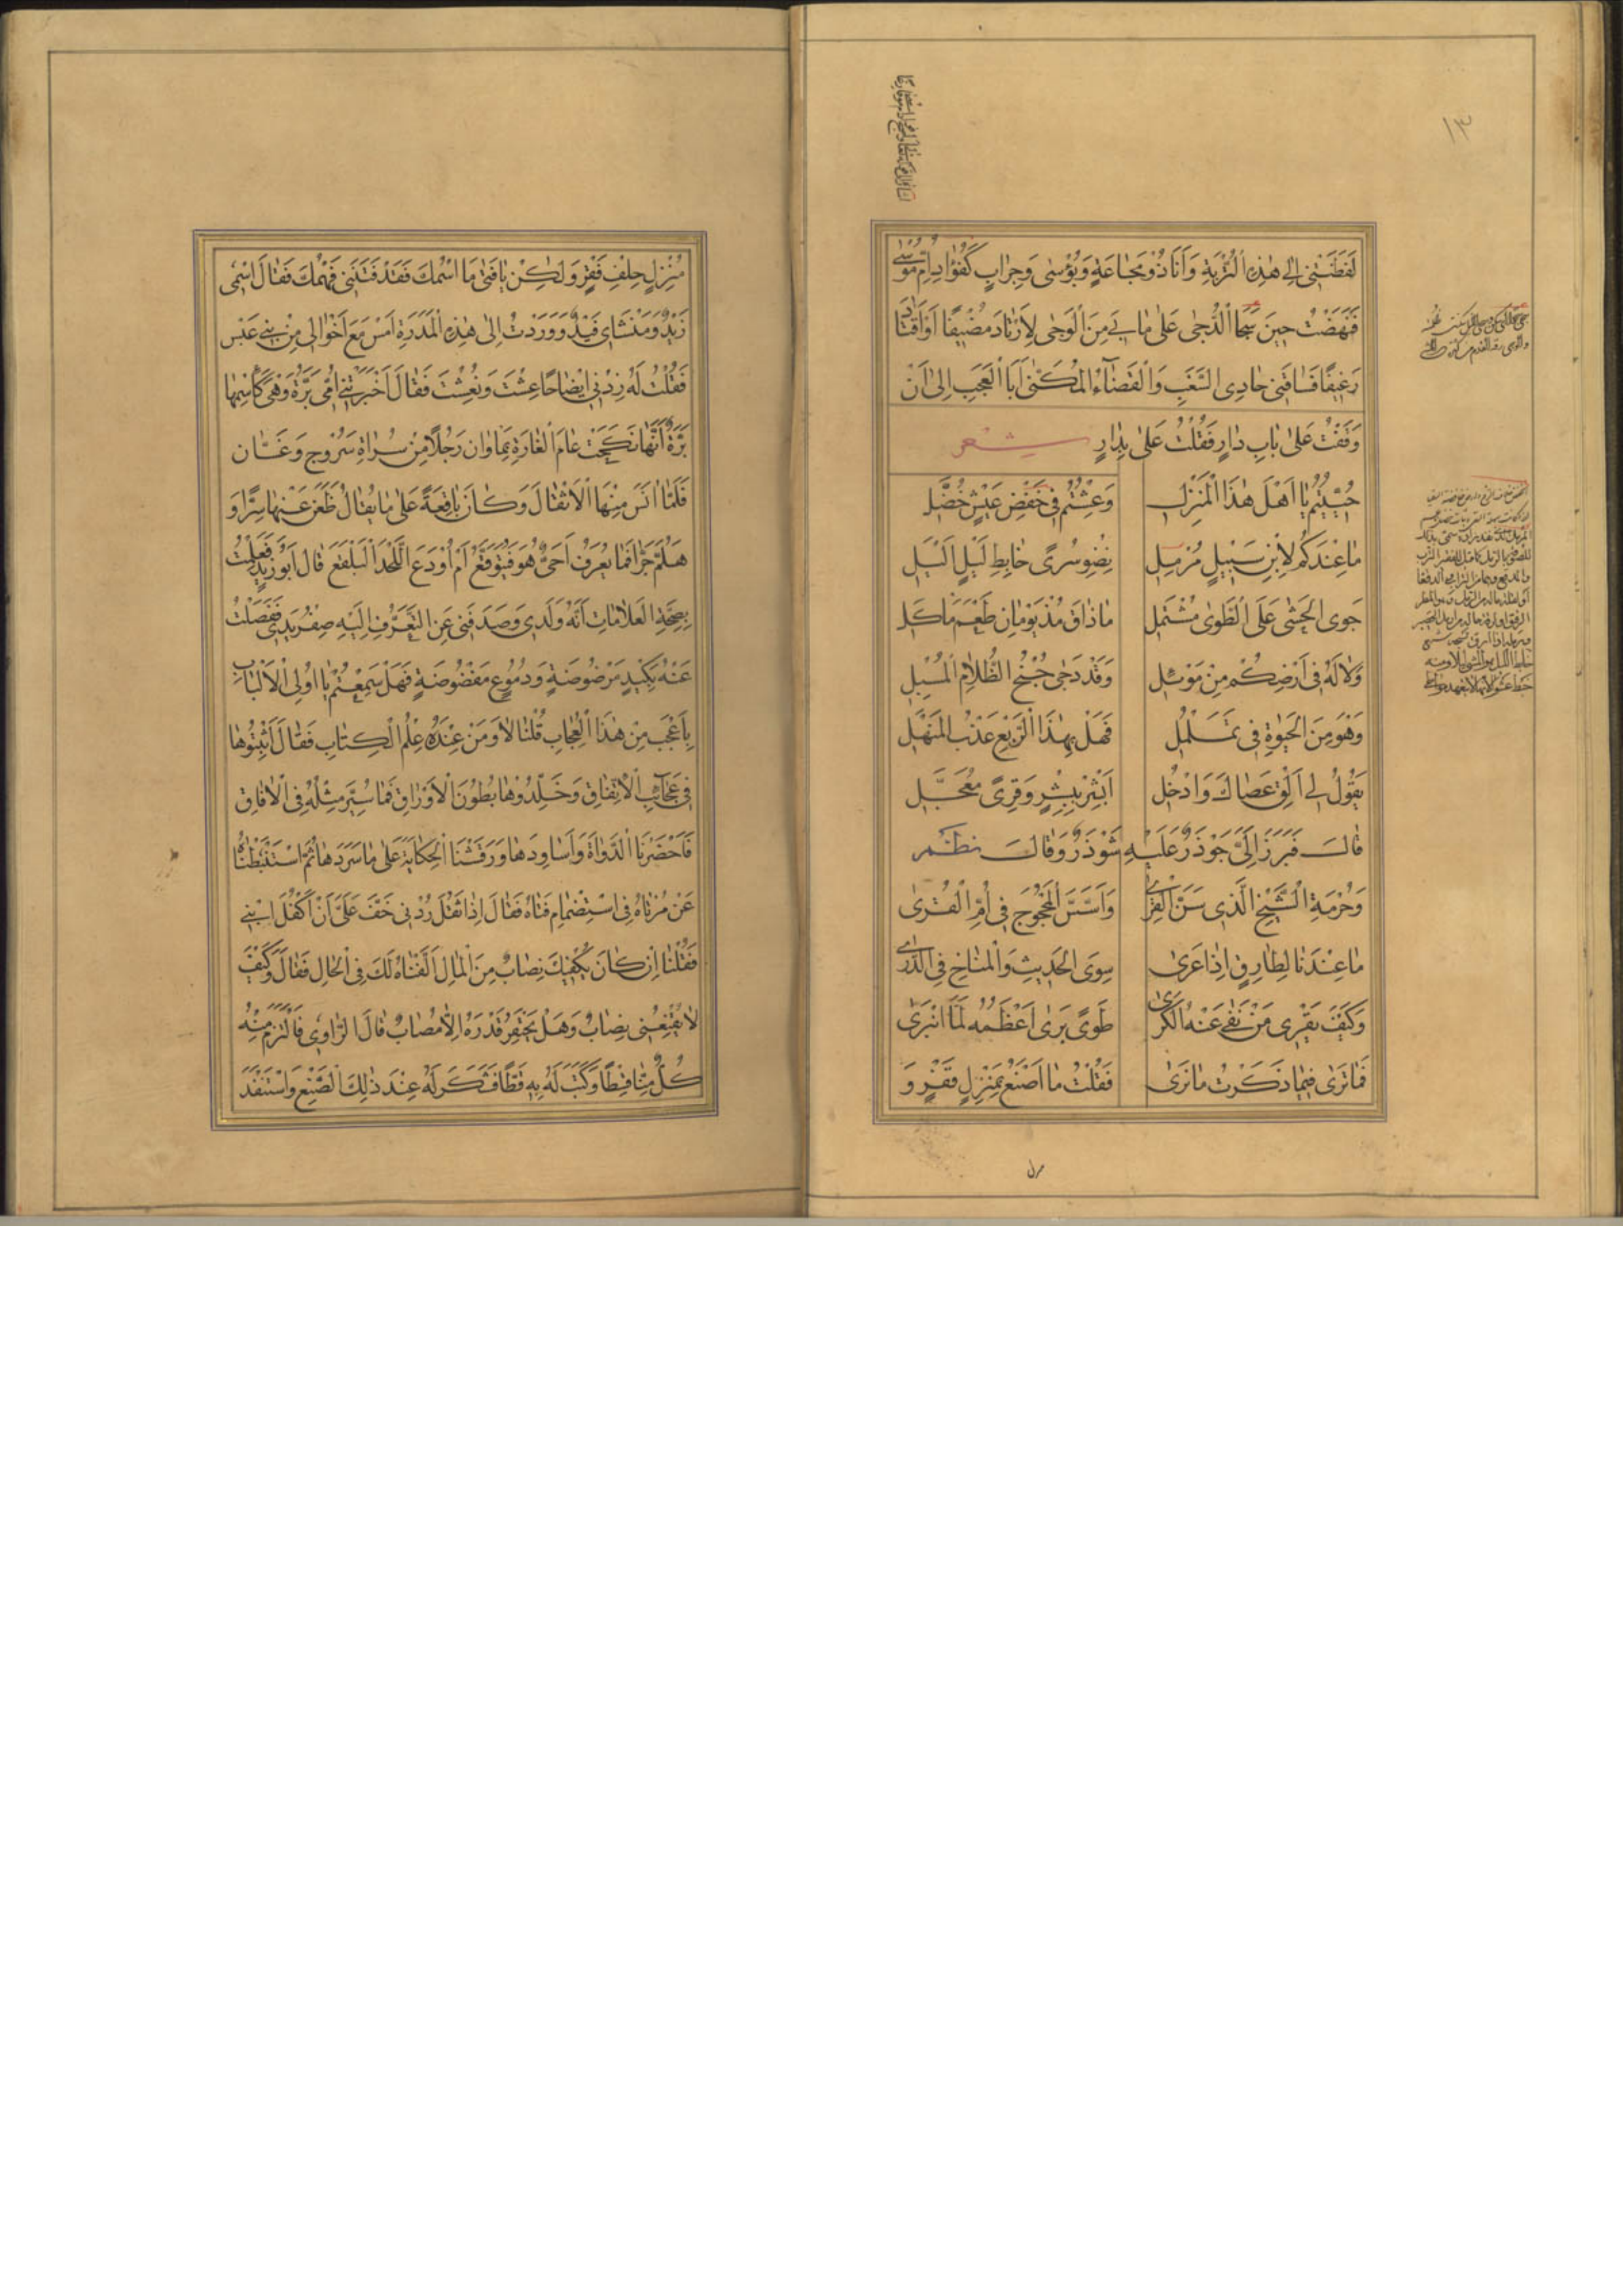 ١٣
لَفَظَتْنِی اِلٰی هٰذِهِ التُّرْبَةِ وَاَنَا ذُوْ مَجَاعَةٍ وَبُؤْسٰی وَجِرَابٍ كَفُؤَادِ اُمِّ مُوْسٰی
فَنَهَضْتُ حِیْنَ سَجَا الدُّجٰی عَلٰی مَا بِیْ مِنَ الْوَجٰی لِاَرْتَادَ مُضِیْفًا اَوْ اَقْتَادَ
رَغِیْفًا فَسَاقَنِی حَادِی السَّغَبِ وَالْقَضَاءُ الْمُكَنّٰی اَبَا الْعَجَبِ اِلٰی اَنْ
وَقَفْتُ عَلٰی بَابِ دَارٍ فَقُلْتُ عَلٰی بِدَارٍ شعر
حُیِّیْتُمْ یَا اَهْلَ هٰذَا الْمَنْزِلِ وَعِشْتُمْ فِی خَفْضِ عَیْشٍ خُضَّلِ
مَا عِنْدَكُمْ لِابْنِ سَبِیْلٍ مُرْمِلِ نِضْوِ سُرًی خَابِطِ لَیْلٍ اَلْیَلِ
جَوِی الْحَشٰی عَلَی الطَّوٰی مُشْتَمِلِ مَا ذَاقَ مُذْ یَوْمَانِ طَعْمَ مَاْكَلِ
وَلَا لَهُ فِی اَرْضِكُمْ مِنْ مَوْئِلِ وَقَدْ دَجٰی جُنْحُ الظَّلَامِ الْمُسْبِلِ
وَهْوَ مِنَ الْحَیْرَةِ فِی تَمَلْمُلِ فَهَلْ بِهٰذَا الرَّبْعِ عَذْبُ الْمَنْهَلِ
یَقُوْلُ لِی اَلْقِ عَصَاكَ وَادْخُلِ اَبْشِرْ بِبِشْرٍ وَقِرًی مُعَجَّلِ
قَالَ فَبَرَزَ اِلَیَّ جَوْذَرٌ عَلَیْهِ شَوْذَرٌ وَقَالَ نظم
وَحُرْمَةِ الشَّیْخِ الَّذِی سَنَّ الْقِرٰی وَاَسَّسَ الْمَحْجُوْجَ فِی اُمِّ الْقُرٰی
مَا عِنْدَنَا لِطَارِقٍ اِذَا عَرٰی سِوَی الْحَدِیْثِ وَالْمُنَاخِ فِی الذَّرٰی
وَكَیْفَ یَقْرِی مَنْ نَفٰی عَنْهُ الْكَرٰی طَوًی بَرٰی اَعْظُمَهُ لَمَّا انْبَرٰی
فَمَا تَرٰی فِیْمَا ذَكَرْتُ مَا تَرٰی فَقُلْتُ مَا اَصْنَعُ بِمَنْزِلٍ قَفْرٍ وَ
مُنْزِلٍ حِلْفِ فَقْرٍ وَلٰكِنْ یَا فَتٰی مَا اسْمُكَ فَقَدْ فَتَنَنِی فَهْمُكَ فَقَالَ اسْمِی
زَیْدٌ وَمَنْشَاِی فَیْدٌ وَوَرَدْتُ اِلٰی هٰذِهِ الْمَدَرَةِ اَمْسِ مَعَ اَخْوَالِی مِنْ بَنِی عَبْسٍ
فَقُلْتُ لَهُ زِدْنِی اِیْضَاحًا عِشْتَ وَنُعِشْتَ فَقَالَ اَخْبَرَتْنِی اُمِّی بَرَّةُ وَهْیَ كَاسْمِهَا
بَرَّةٌ اَنَّهَا نَكَحَتْ عَامَ الْغَارَةِ بِمَاوَانَ رَجُلًا مِنْ سُرَاةِ سَرُوْجَ وَغَسَّانَ
فَلَمَّا اٰنَسَ مِنْهَا الْاِثْقَالَ وَكَانَ بَاقِعَةً عَلٰی مَا یُقَالُ ظَعَنَ عَنْهَا سِرًّا وَ
هَلُمَّ جَرًّا فَمَا یُعْرَفُ اَحَیٌّ هُوَ فَیُتَوَقَّعُ اَمْ اُوْدِعَ اللَّحْدَ الْبَلْقَعَ قَالَ اَبُوْ زَیْدٍ فَعَلِمْتُ
بِصِحَّةِ الْعَلَامَاتِ اَنَّهُ وَلَدِی وَصَدَفَنِی عَنِ التَّعَرُّفِ اِلَیْهِ صِفْرُ یَدِی فَفَصَلْتُ
عَنْهُ بِكَبِدٍ مَرْضُوْضَةٍ وَدُمُوْعٍ مَفْضُوْضَةٍ فَهَلْ سَمِعْتُمْ یَا اُولِی الْاَلْبَابِ
بِاَعْجَبَ مِنْ هٰذَا الْعُجَابِ قُلْنَا لَا وَمَنْ عِنْدَهُ عِلْمُ الْكِتَابِ فَقَالَ اَثْبِتُوْهَا
فِی عَجَائِبِ الْاِتِّفَاقِ وَخَلِّدُوْهَا بُطُوْنَ الْاَوْرَاقِ فَمَا سُیِّرَ مِثْلُهَا فِی الْاٰفَاقِ
فَاَحْضَرْنَا الدَّوَاةَ وَاَسَاوِدَهَا وَرَقَشْنَا الْحِكَایَةَ عَلٰی مَا سَرَدَهَا ثُمَّ اسْتَنْبَطْنَاهُ
عَنْ مُرْتَاهُ فِی اسْتِضْمَامِ فَتَاهُ فَقَالَ اِذَا ثَقُلَ رُدْنِی خَفَّ عَلَیَّ اَنْ اَكْفُلَ ابْنِی
فَقُلْنَا اِنْ كَانَ یَكْفِیْكَ نِصَابٌ مِنَ الْمَالِ اَلَّفْنَاهُ لَكَ فِی الْحَالِ فَقَالَ وَكَیْفَ
لَا یُقْنِعُنِی نِصَابٌ وَهَلْ یَحْتَقِرُ قَدْرَهُ اِلَّا مُصَابٌ قَالَ الرَّاوِی فَالْتَزَمَ مِنْهُ
كُلٌّ مِنَّا قِسْطًا وَكَتَبَ لَهُ بِهِ قِطًّا فَشَكَرَ لَهُ عِنْدَ ذٰلِكَ الصُّنْعِ وَاسْتَنْفَدَ